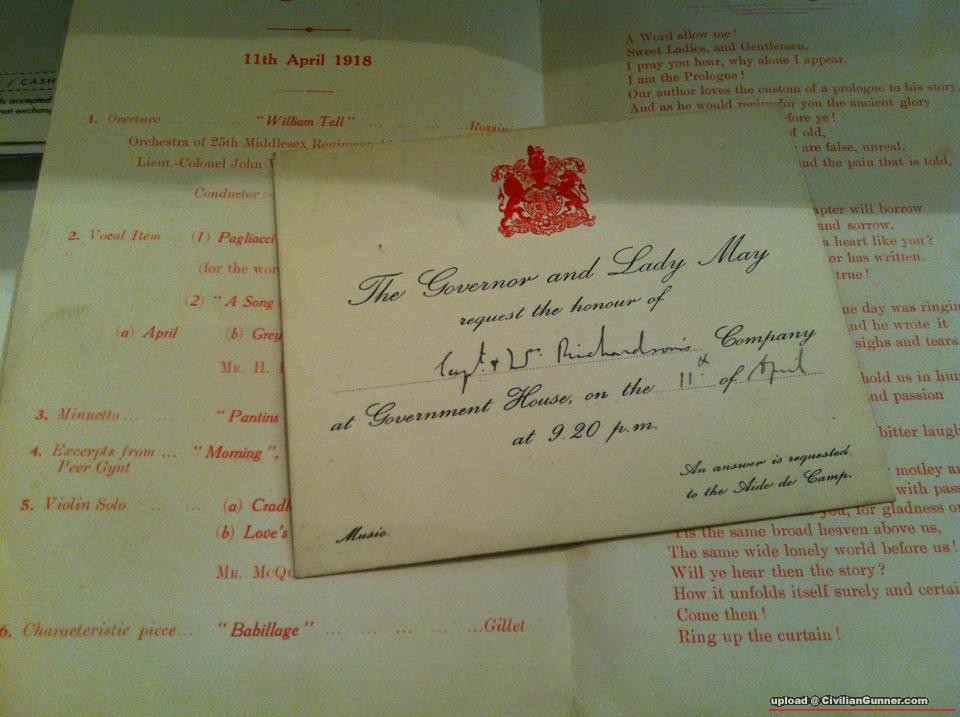 / CASH
accepted
not exchang
11th April 1918
1. Overture ... ... "William Tell" ... ... ... Rossini
Orchestra of 25th Middlesex Regiment
Lieut.-Colonel John
Conductor:
2. Vocal Item ... (1) Pagliacci
(for the
(2) "A Song
(a) April (b) Grey
MR. H.
3. Minuetto ... "Pantins
4. Excerpts from ... "Morning",
Peer Gynt
5. Violin Solo ... ... (a) Cradl
(b) Love's
MR. McQu
6. Characteristic piece... "Babillage" ... ... ... ... Gillet
The Governor and Lady May
request the honour of
Capt. & Richardson's Company
at Government House, on the 11th of April
at 9.20 p.m.
An answer is requested
to the Aide de Camp.
Music.
A Word allow me!
Sweet Ladies, and Gentlemen,
I pray you hear, why alone I appear,
I am the Prologue!
Our author loves the custom of a prologue to his story,
And as he would revive for you the ancient glory
fore ye!
of old,
are false, unreal,
and the pain that is told,
apter will borrow
and sorrow.
a heart like you?
or has written.
true!
ne day was ringin
nd he wrote it
sighs and tears
hold us in hum
nd passion
bitter laugh
motley an
with pass
you, for gladness or
'Tis the same broad heaven above us,
The same wide lonely world before us!
Will ye hear then the story?
How it unfolds itself surely and certai
Come then!
Ring up the curtain!
upload @ CivilianGunner.com